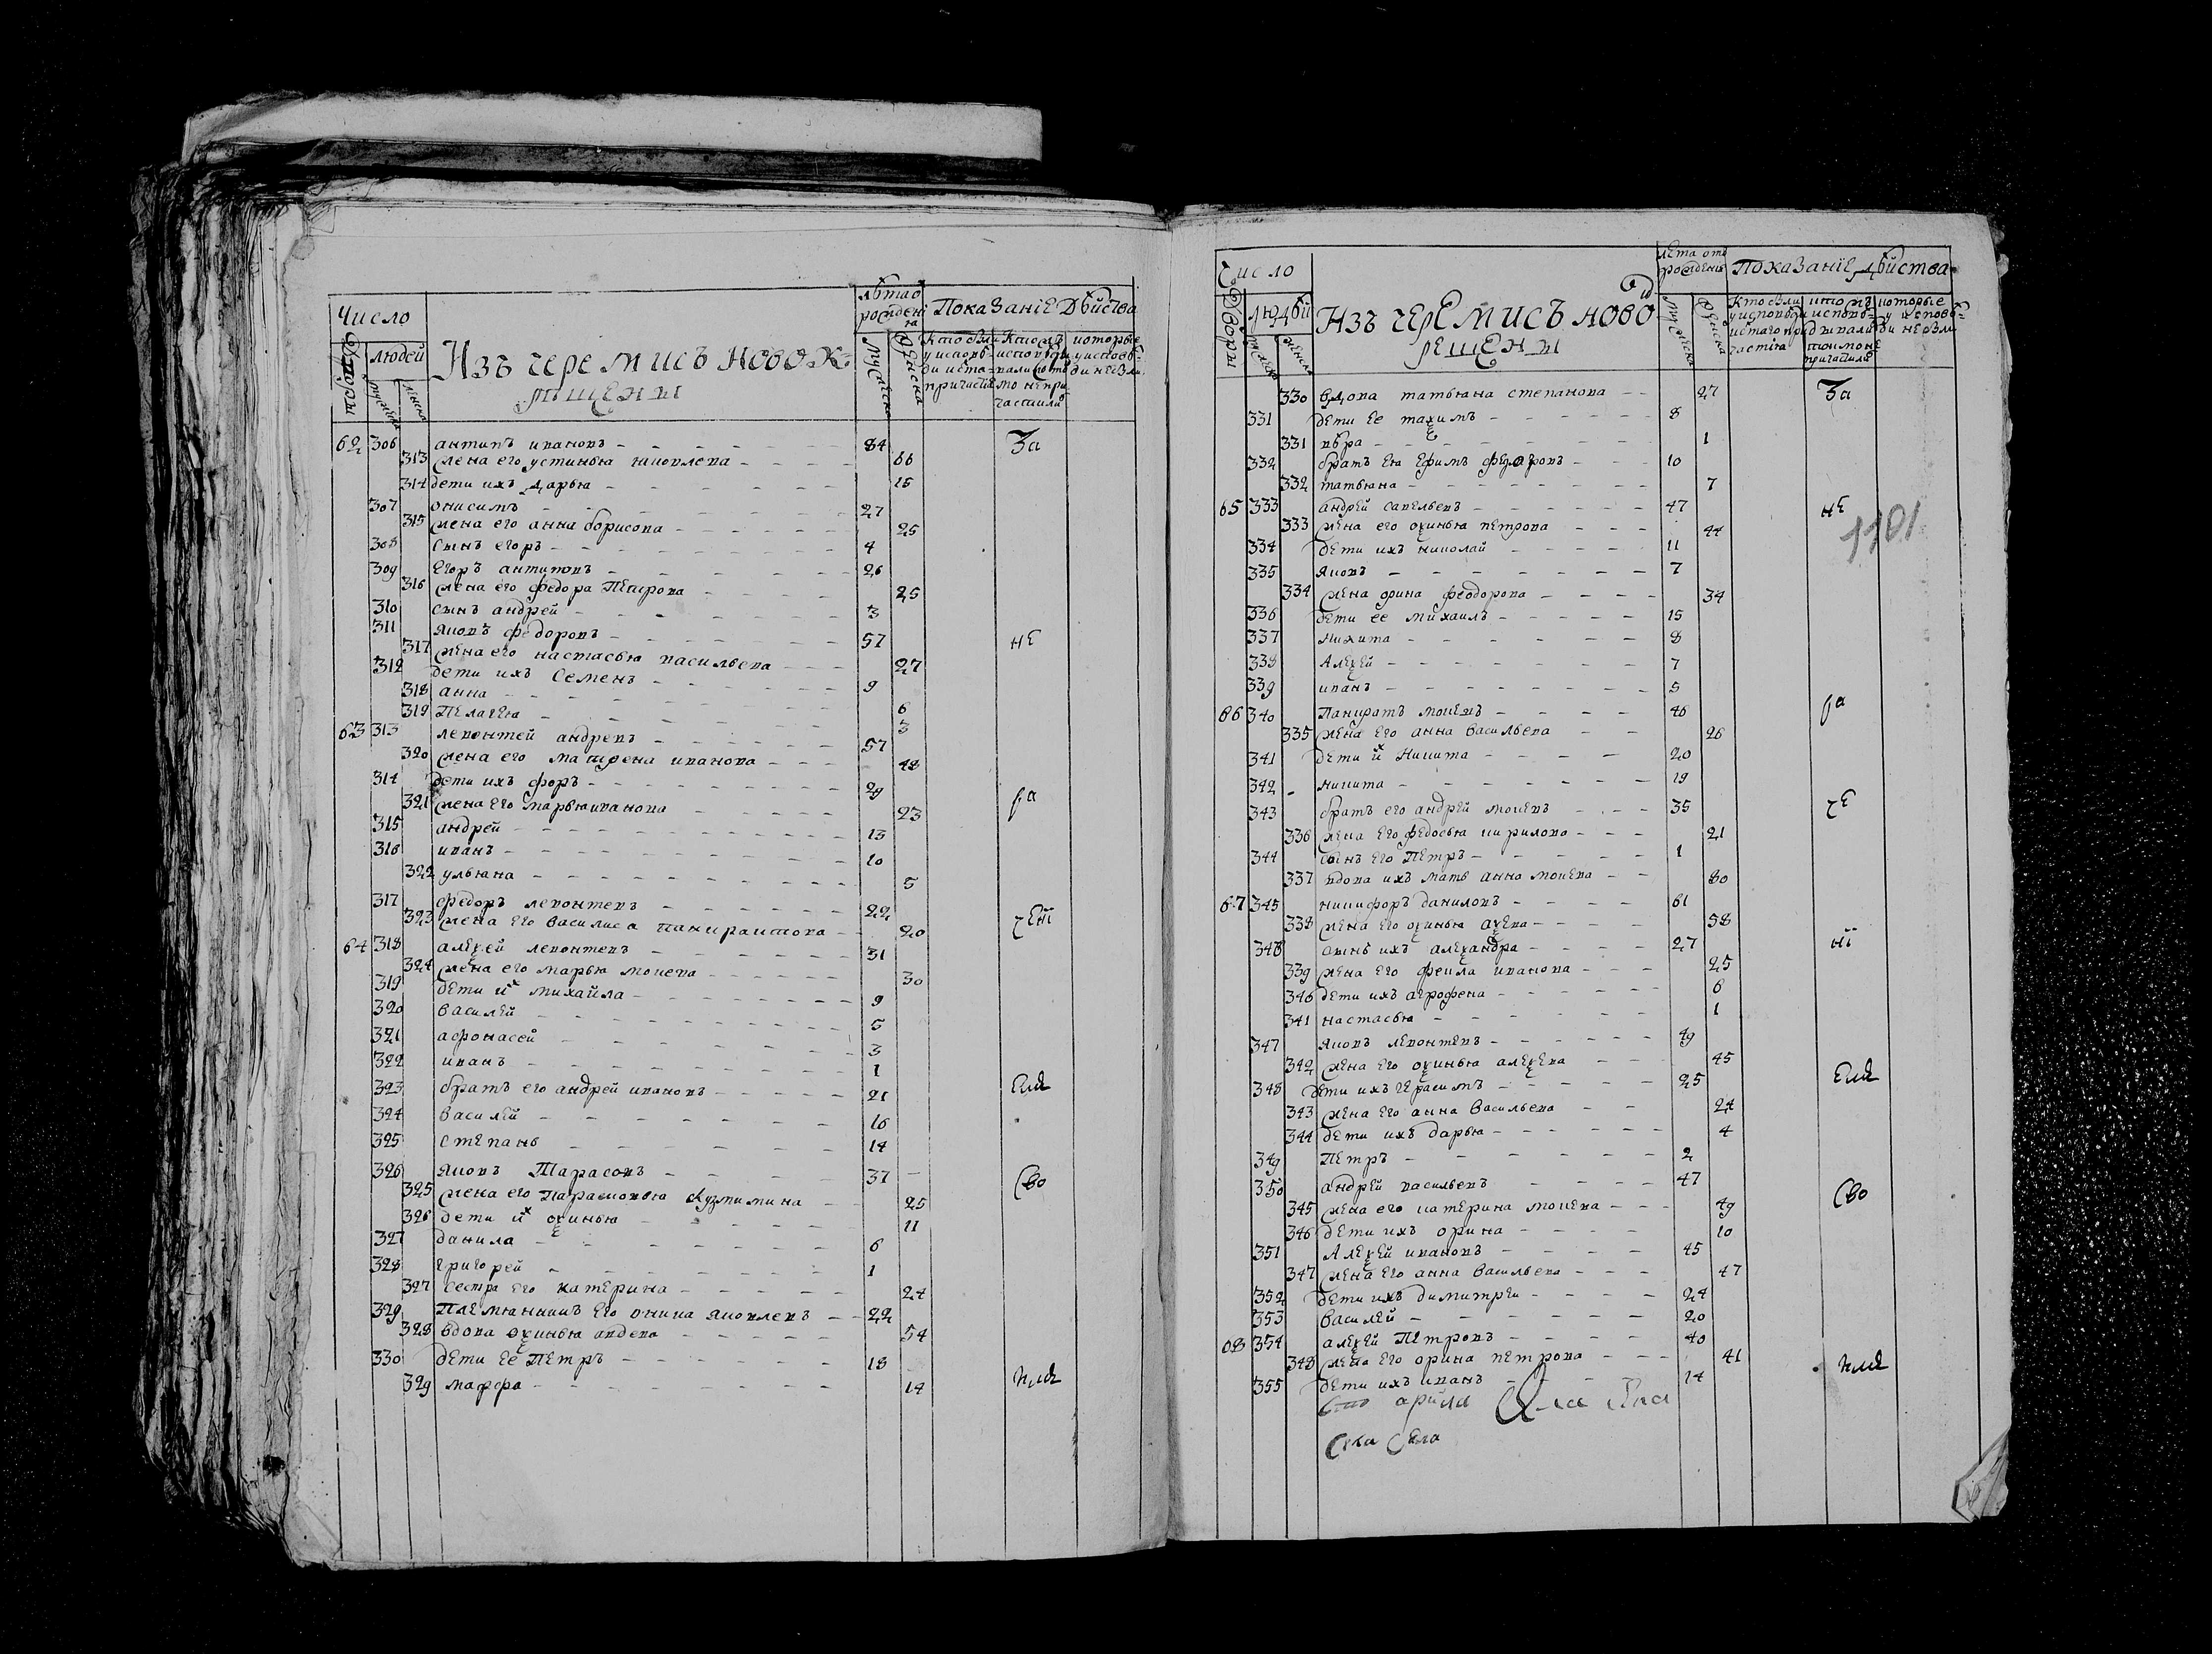 Число
людей
Изъ черемисъ новок=
рещены
лѣта о
рожден
Показанїе дѣйства
62 306 антипъ ивановъ 84 За
313 жена его устинья яковлева 66
314 дети ихъ дарья 15
307 онисимъ 27
315 жена его анна борисова 25
308 сынъ егоръ 4
309 Егоръ антиповъ 26
316 жена его федора Петрова 25
310 сынъ андрей 3
311 яковъ федоровъ 57 не
317 жена его настасья васильева 27
312 дети ихъ Семенъ 9
318 анна 6
319 Пелагея 3
63 313 леонтей андревъ 57
320 жена его матрена иванова 48
314 дети ихъ 29
321 жена его марья иванова 23 ра
315 андрей 13
316 иванъ 10
322 ульяна 5
317 федоръ левонтевъ 22
323 жена его Василиса панкратова 20 ченї
64 318 алеѯей левонтевъ 31
324 жена его марья мокева 30
319 дети их михайла 9
320 Василей 5
321 афонасей 3
322 иванъ 1
323 братъ его андрей ивановъ 21 емъ
324 Василей 16
325 Степанъ 14
326 яковъ Тарасовъ 37 Сво
325 жена его Парасковья Кузмимина 25
326 дети их оѯинья 11
327 данила 6
328 григорей 1
327 Сестра его катерина 24
329 Племянникъ его оника яковлевъ 22
328 вдова оѯинья авдева 54
330 дети ее Петръ 18
329 мафера 14 имъ
Число
людѣй
Изъ черемисъ ново
рещены
лета отъ
рожденїя
Показанїе дѣйства
330 вдова татьяна степанова 27 За
331 дети ее маѯимъ 8
331 вѣра 1
332 братъ ея Ефимъ федоровъ 10
332 татьяна 7
65 333 андрей савельевъ 47 не
333 жена его оѯинья петрова 44
1101
334 дети ихъ николай 11
335 яковъ 7
334 жена орина феодорова 34
336 дети ее михаилъ 15
337 никита 8
338 Алеѯей 7
339 иванъ 5
66 340 Панкратъ мокевъ 46 ра
335 жена его анна Васильева 26
341 дети их Никита 20
342 никита 19
343 братъ его андрей мокевъ 35 че
336 жена его федосья кирилова 21
344 сынъ его Петръ 1
337 вдова ихъ мать анна мокева 80
67 345 никифоръ даниловъ 61
338 жена его оѯинья 58
346 сынъ ихъ алеѯандра 27 нї
339 жена его фекла иванова 25
340 дети ихъ агрофена 6
341 настасья 1
347 яковъ левонтевъ 49
342 жена его оѯинья алеѯева 45
348 дети ихъ герасимъ 25 емъ
343 жена его анна Васильева 24
344 дети ихъ дарья 4
349 Петръ 2
350 андрей васильевъ 47 Сво
345 жена его катерина мокева 49
346 дети ихъ орина 10
351 Алеѯей ивановъ 45
347 жена его анна Васильева 47
352 дети ихъ димитреи 24
353 Василей 20
68 354 алеѯей Петровъ 40
348 жена его орина петрова 41
355 дети ихъ иванъ 14 имъ